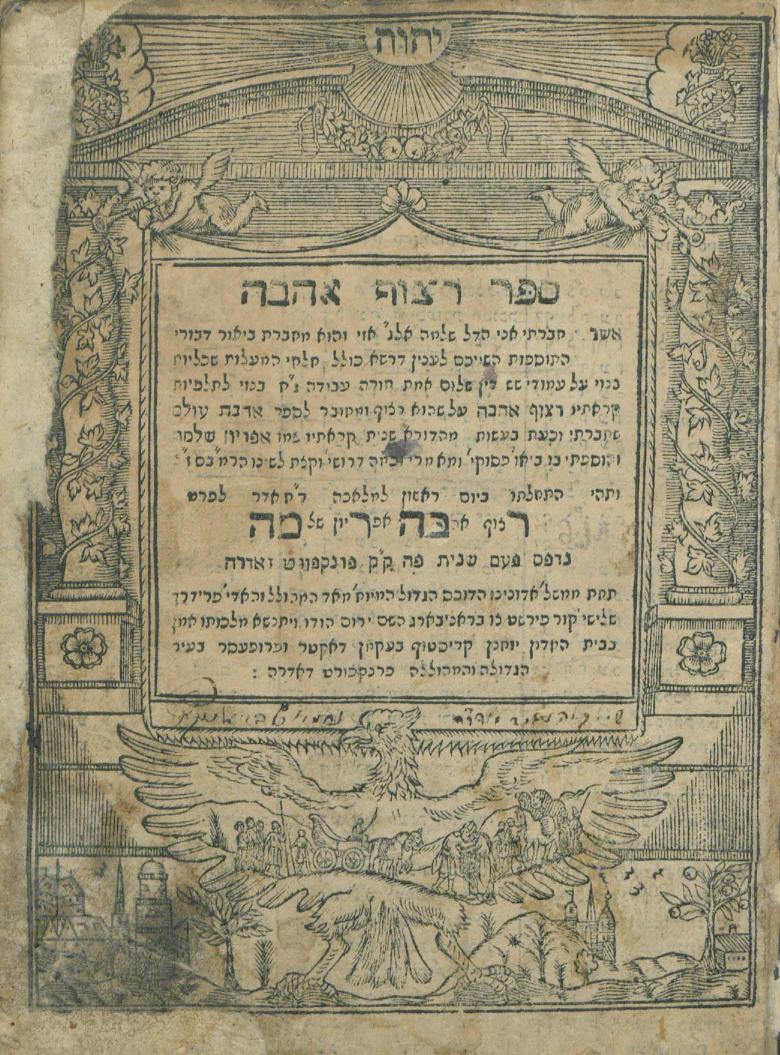 יהוה
ספר רצוף אהבה
אשר חברתי אני הדל שלמה אלג״אזי והוא מחברת ביאור דבורי
התוספות השייכים לענין דרשא כולל חלקי המעלות שכליות
בנוי על עמודי שש דין שלום אמת תורה עבודה ג״ח בנוי לתלפיות
קראתיו רצוף אהבה על שהוא רצוף ומחובר לספר אהבה עולם
שחברתי וכעת בעשות מהדורא שנית קראתיו שמו אפריון שלמה
והוספתי בו ביאו׳ פסוקי׳ ומאמרי׳ וקצת לשינו הרמ״בם ז״
ותהי התחלתו ביום ראשון למלאכה ר״ח אדר לפרט
רצוף אהבה אפריון שלמה
נדפס פעם שנית פה ק״ק פרנקפורט דאדרה
תחת ממשל׳ אדונינו הדוכס הגדול המיוח׳ מאד המהולל והאדי׳ פרידרך
שלישי קור פירשט צו בראנינבארג השם ירום הודו ויתנשא מלכותו אמן
בבית האדון יוחנן קריסטוף בעקמן דאקטר ופרופעסר בעיר
הגדולה והמהוללה פרנקפורט דאדרה :